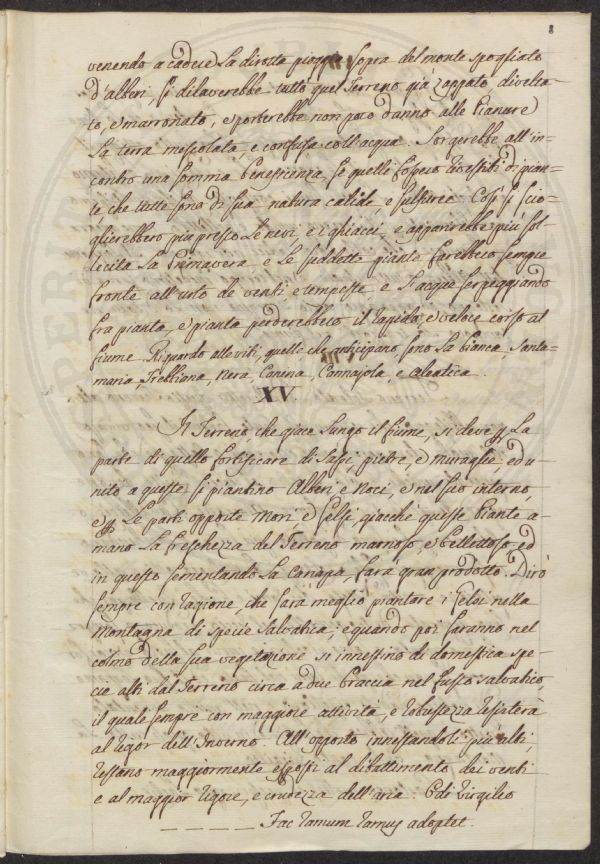 8
venendo a cadere la dirotta pioggia sopra del monte spogliato
d'alberi, si dilaverebbe tutto quel Terreno già zappato, divelta-
to, e marronato, e porterebbe non poco danno alle Pianure
la terra mescolata e confusa coll'acqua. Sorgerebbe all'in-
contro una somma beneficienza, se quelli fossero rivestiti di pian-
te, che tutte sono di sua natura calide, e sulfuree. Così si scio-
glierebbero più presto le nevi e i ghiacci, e apparirebbe più sol-
lecita la Primavera e le suddette piante farebbero sempre
fronte all'urto de venti e tempeste, e l'acque serpeggiando
fra pianta, e pianta perderebbero il rapido, e veloce corso al
fiume. Riguardo alle viti, quelle che anticipano sono la bianca, Santa-
maria, Trebbiana, Nera, Canena, Cannajola, e Aleatica.
XV.
Il Terreno, che giace lungo il fiume, si deve p la
parte di quello fortificare di sassi, pietre, e muraglie, ed u-
nito a queste si piantino Alberi e Noci, e nel suo interno
e p le parti opposte Mori, e Celsi, giacchè queste Piante a-
mano la freschezza del Terreno marnoso, e bellettoso, ed
in questo sementando la Canapa, farà gran prodotto. Dirò
sempre con ragione, che sarà meglio piantare i Celsi nella
Montagna di specie salvatica; e quando poi saranno nel
colmo della sua vegetazione si innestino di domestica spe-
cie alti dal Terreno circa a due braccia nel fusto salvatico,
il quale sempre con maggiore attività, e robustezza resisterà
al rigor dell'Inverno. All'opposto innestandoli più alti,
restano maggiormente esposti al dibattimento dei venti
e al maggior rigore, e crudezza dell'aria. Odi Virgilio
_ _ _ _ _ Fac ramum ramus adoptet.